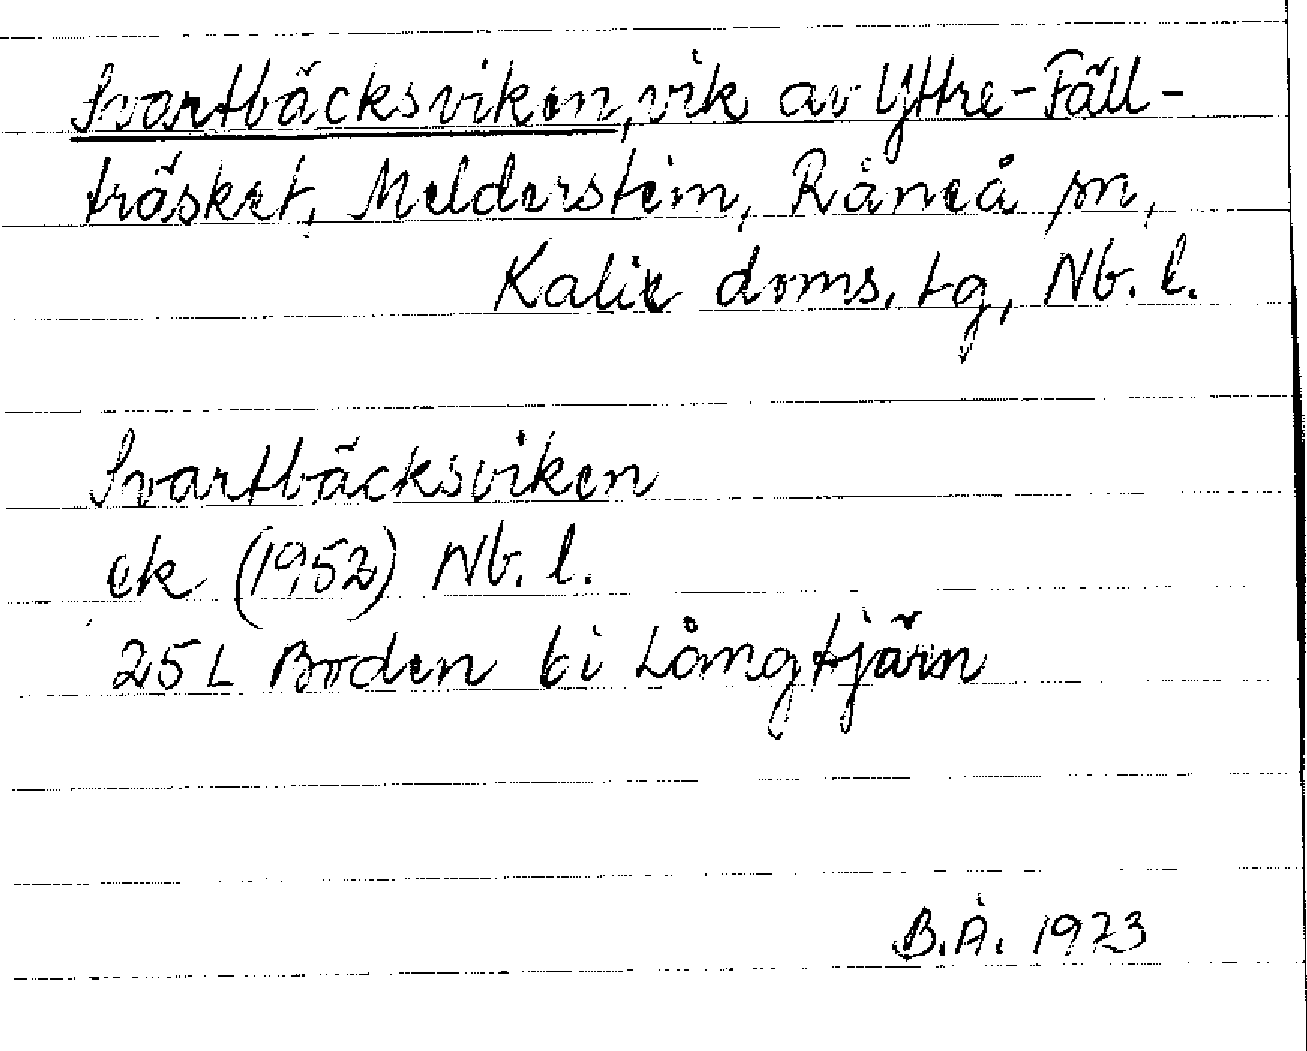 Svartbäcksviken, vik av Yttre-Fäll-
träsket, Melderstein, Råneå sn,
Kalix doms. tg, Nb. l.
Svartbäcksviken
ek (1952) Nb. l.
25 L Boden 6 i Långtjärn
B.Å. 1973